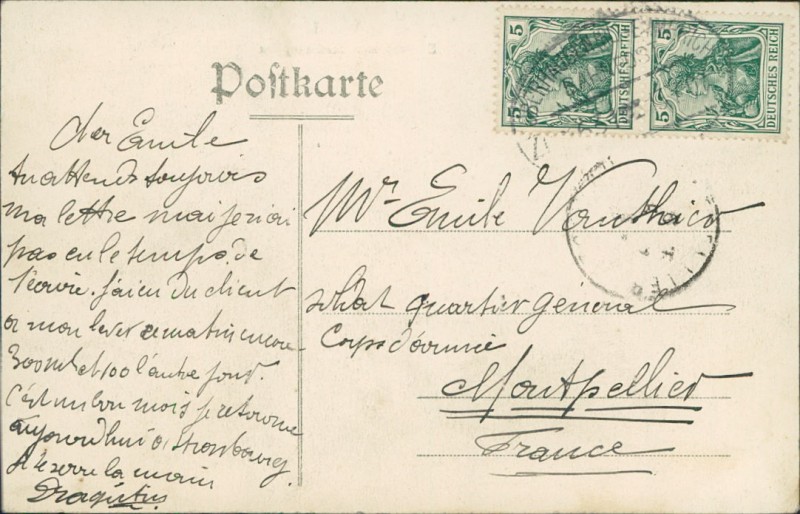 Postkarte
5
DEUTSCHES REICH
5
DEUTSCHES REICH
cher Emile
tu attends toujours
ma lettre mais je n'ai
pas eu le temps de
l'ecrire. j'ai eu du client
a mon lever ce matin encore
300 ml et 100 l'autre jour.
C'est un bon mois je retourne
aujourdhui a Strasbourg.
Je te serre la main
Mr Emile
soldat quartier général
Corps d'armée
Montpellier
France